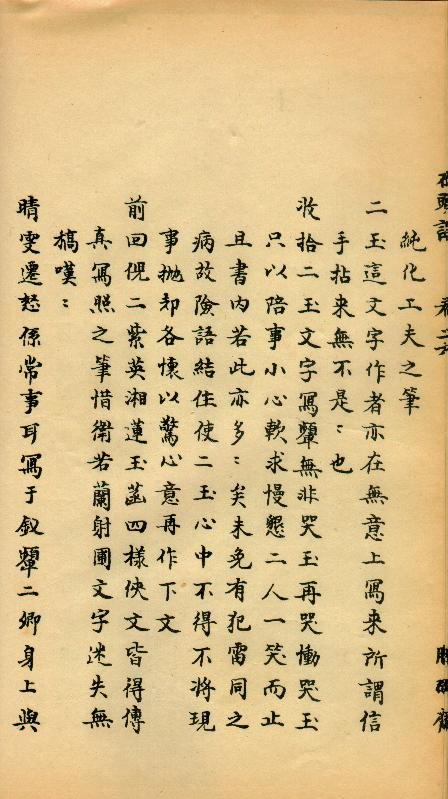 純化工夫之筆
二玉這文字作者亦在無意上寫来所謂信
手拈来無不是:也
收拾二玉文字寫顰無非哭玉再哭慟哭玉
只以陪事小心軟求慢懇二人一笑而止
且書内若此亦多:矣未免有犯雷同之
病故險語結住使二玉心中不得不將現
事抛却各懷以驚心意再作下文
前回倪二紫英湘蓮玉菡四樣俠文皆得傳
真寫照之筆惜衛若蘭射圃文字迷失無
稿嘆:
晴雯遷怒係常事耳寫于釵顰二卿身上與